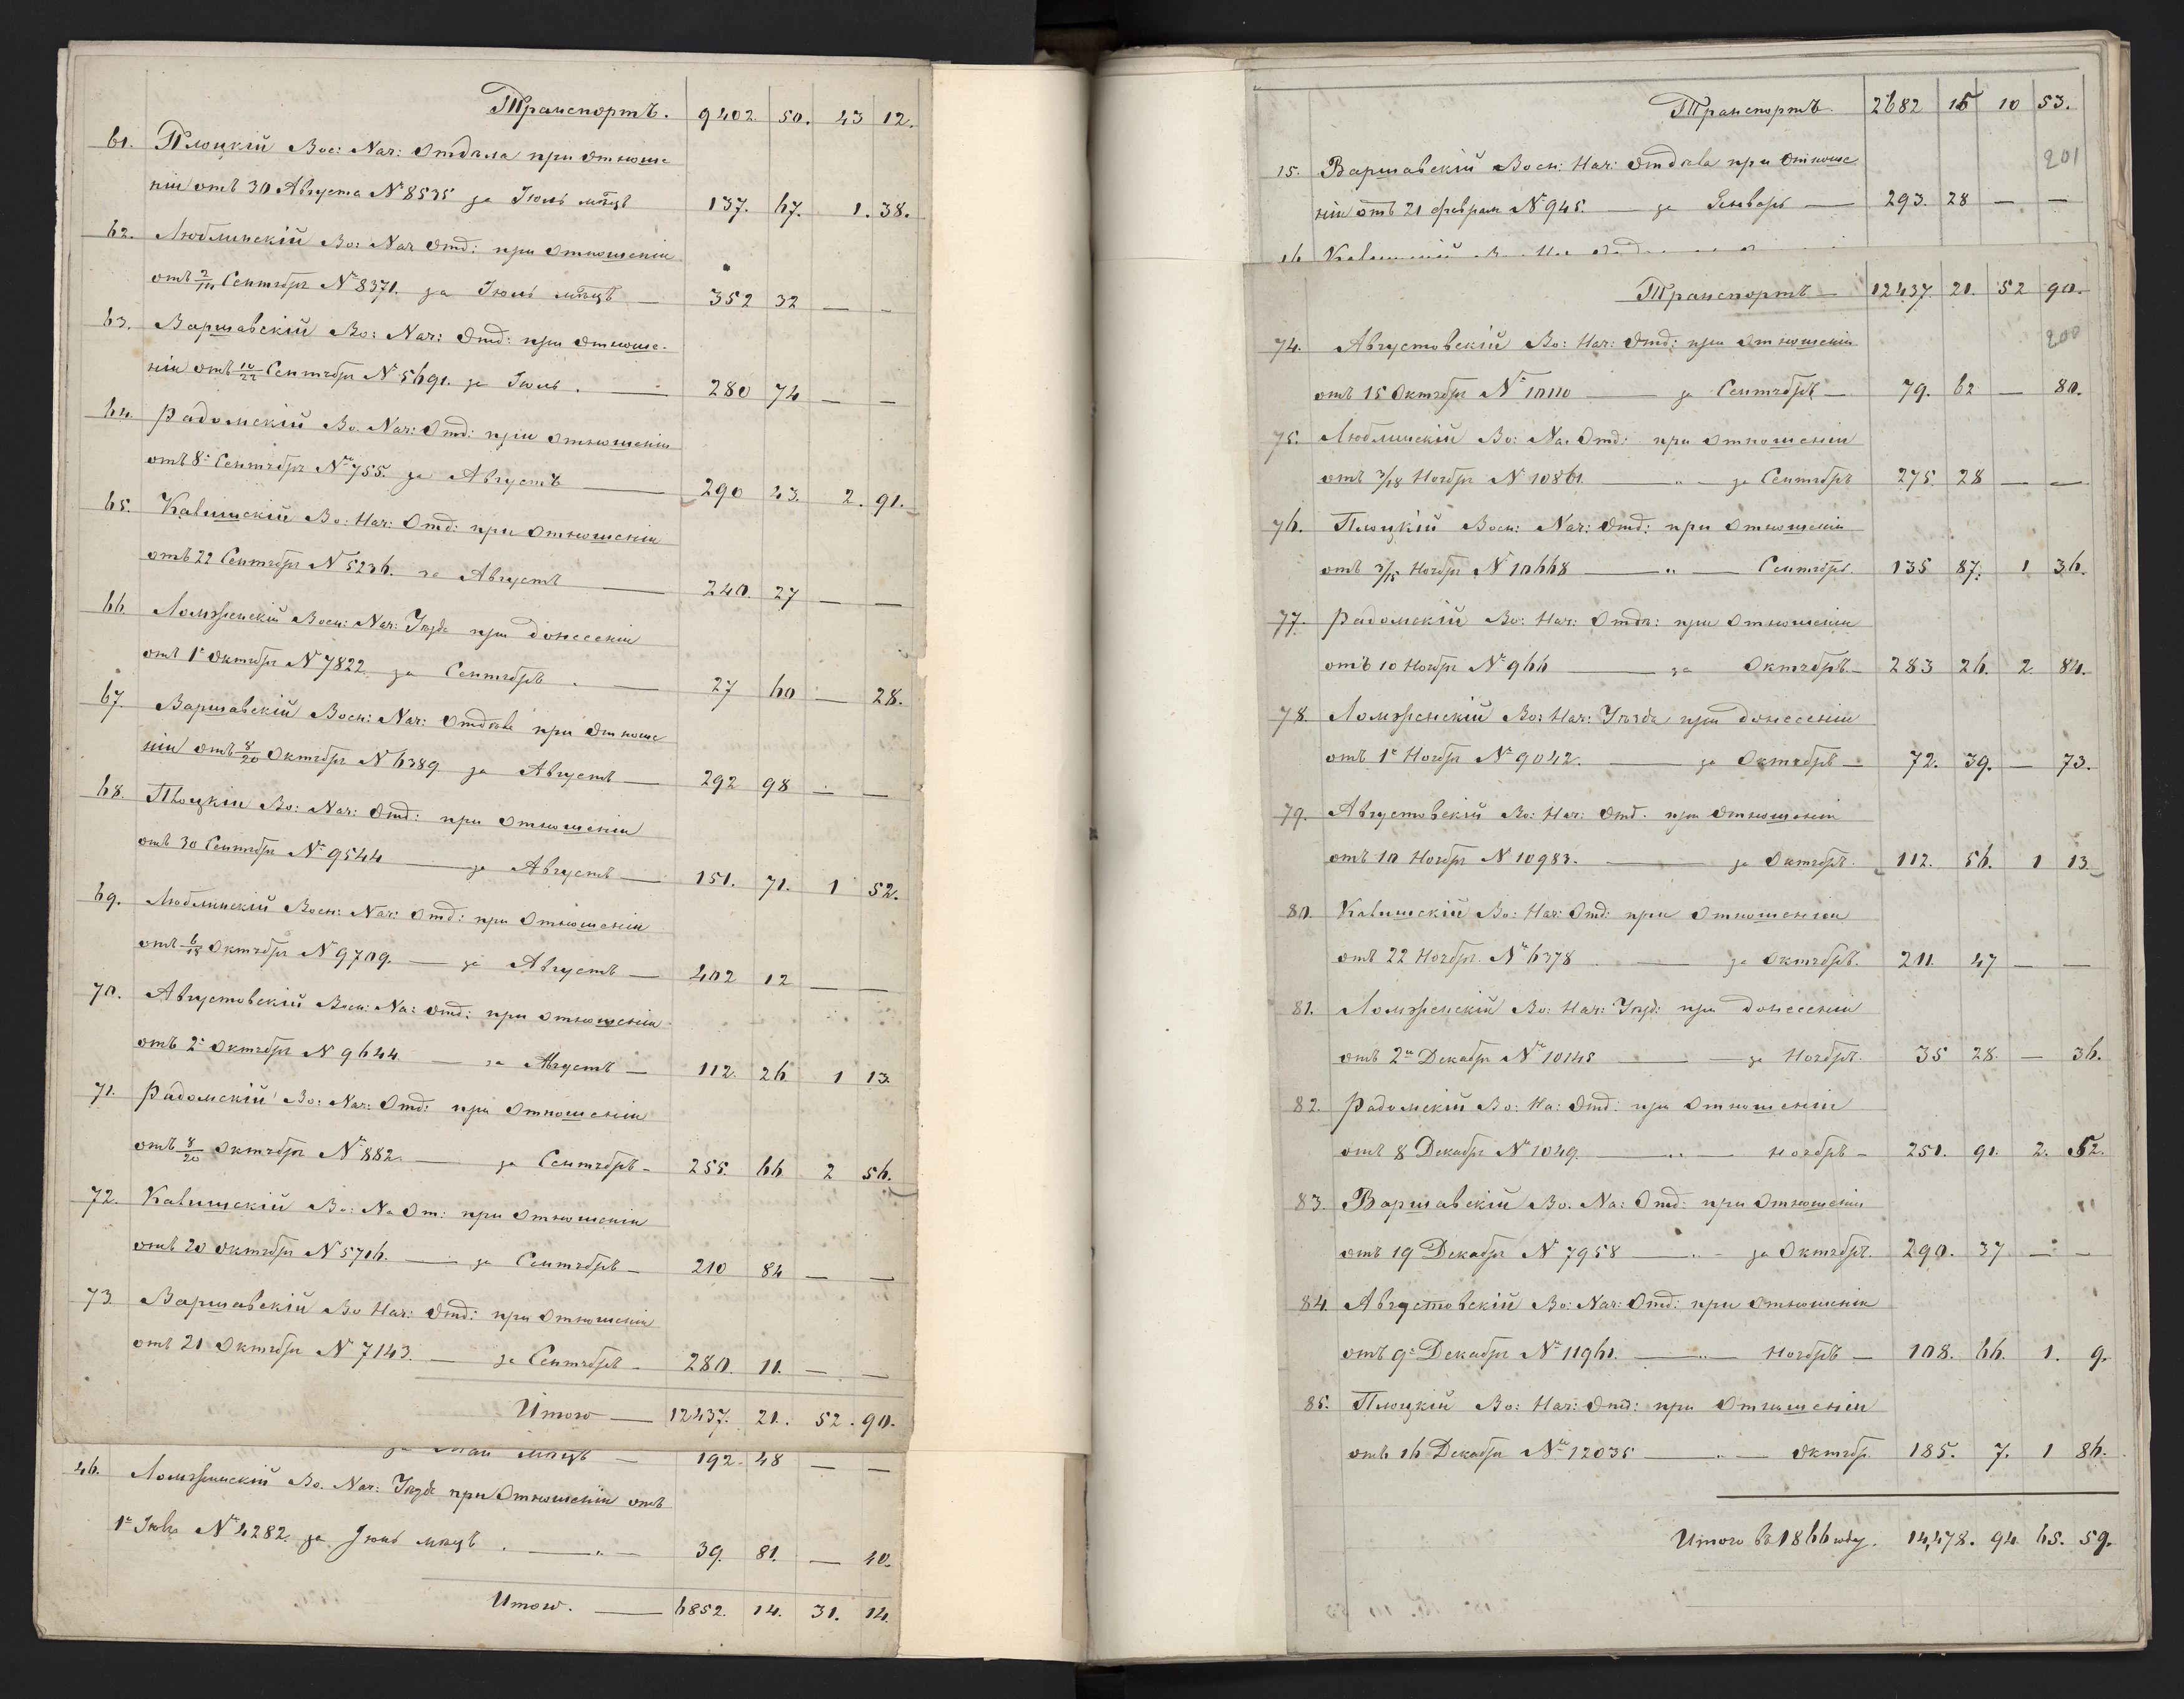 Транспортъ. 9402. 50. 43 12.
61. Плоцкій Вое: Нач: Отдѣла при Отноше
ніи отъ 30 Августа № 8535 за Іюль мѣцъ 137. 67. 1. 38.
62. Люблинскій Во: Нач Отд: при Отношеніи
отъ 2/14 Сентября № 8371. за Іюль мѣцъ — 352 32 — —
63. Варшавскій Во: Нач: Отд: при Отноше-
ніи отъ 10/22 Сентября № 5691. за Іюль. — 280 74 — —
64. Радомскій Во. Нач: Отд: при Отношеніи
отъ 8. Сентября № 755. за Августъ — 290 43. 2. 91.
65. Калишскій Во: Нач: Отд: при Отношеніи
отъ 22 Сентября № 5236. за Августъ — 240. 27 — —
66. Ломженскій Воен: Нач: Уѣзда при донесеніи
отъ 1го Октября № 7822 за Сентябрь. — 27 60 — 28.
67. Варшавскій Воен: Нач: Отдѣла при Отноше
ніи отъ 8/20 Октября № 6389 за Августъ — 292 98 — —
68. Плоцкій Во: Нач: Отд: при Отношеніи
отъ 30 Сентября № 9544 — за Августъ — 151. 71. 1 52.
69. Люблинскій Воен: Нач: Отд: при Отношеніи
отъ 6/18 Октября № 9709. — за Августъ — 402 12 — —
70. Августовскій Воен: На: Отд: при Отношеніи
отъ 2. Октября № 9644 — за Августъ — 112. 26. 1 13.
71. Радомскій Во: Нач: Отд: при Отношеніи
отъ 8/20 Октября № 882. — за Сентябрь — 255. 66 2 56.
72. Калишскій Во: На От: при Отношеніи
отъ 20 Октября № 5706. — за Сентябрь — 210 84 — —
73. Варшавскій Во Нач: Отд: при Отношеніи
отъ 21 Октября № 7143. — за Сентябрь — 280. 11. — —
Итого — 12437. 21. 52. 90.
за Май мѣцъ — 192. 48 — —
46. Ломженскій Во. Нач: Уѣзда при Отношеніи отъ
1го № 4282. за Іюнь мѣцъ. — 39. 81. — 40.
Итого. — 6852. 14. 31. 14.
Транспортъ. 2682 15 10 53.
201
15. Варшавскій Воен: Нач: Отдѣла при Отноше
ніи отъ 21 февраля № 945. — за Генварь — 293. 28 — —
16 Калишскій
Транспортъ — 12437. 21. 52 90.
200
74. Августовскій Во: Нач: Отд: при Отношеніи
отъ 15 Октября № 10110 — за Сентябрь — 79. 62 — 80.
75. Люблинскій Во: На: Отд: при Отношеніи
отъ Ноября № 10861. — " — за Сентябрь 275. 28 — —
76. Плоцкій Воен: Нач: Отд: при Отношеніи
отъ 3/15 Ноября № 10668 — " — Сентябрь. 135 87. 1 36.
77. Радомскій Во: Нач: Отдѣ: при Отношеніи
отъ 10 Ноября № 966 — за Октябрь — 283 26. 2. 84.
78. Ломженскій Во: Нач: Уѣзда при донесеніи
отъ 1го Ноября № 9042. — за Октябрь — 72. 39. — 73.
79. Августовскій Во: Нач: Отд. при Отношеніи
отъ 10 Ноября № 10983. — за Октябрь. 112. 56. 1 13.
80. Калишскій Во: Нач: Отд: при Отношеніи
отъ 22 Ноября. № 6378 — за Октябрь. 211. 47 — —
81. Ломженскій Во: Нач: Уѣзд: при донесеніи
отъ 2го Декабря № 10145 — за Ноябрь. 35 28. — 36.
82. Радомскій Во: На: Отд: при Отношеніи
отъ 8 Декабря № 1049. — " — Ноябрь — 251. 91. 2. 52.
83. Варшавскій Во. На: Отд: при Отношеніи
отъ 19 Декабря № 7958 — " — за Октябрь. 290. 37 — —
84. Августовскій Во: Нач: Отд: при Отношеніи
отъ 9. Декабря № 11961. — " — Ноябрь — 108. 66. 1. 9.
85. Плоцкій Во: Нач: Отд: при Отношеніи
отъ 16 Декабря № 12035 — " — Октябр. 185. 7. 1 86.
Итого въ 1866 году. 14,478. 94. 65. 59.